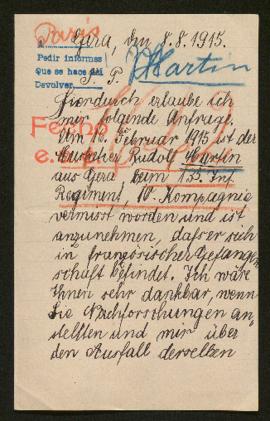 Paris
Gera, den 8.8.1915.
Pedir informes
Que se hace del
Devolver
P. P.
Martin
Hierdurch erlaube ich
mir folgende Anfrage.
Am 12. Februar 1915 ist der
Musketier Rudolf Martin
aus Gera beim 153. Inf.
Regiment 10. Kompagnie
vermisst worden und ist
anzunehmen, dafs er sich
in französischer Gefangen
schaft befindet. Ich wäre
Ihnen sehr dankbar, wenn
Sie Nachforschungen an-
stellten und mir über
den Ausfall derselben